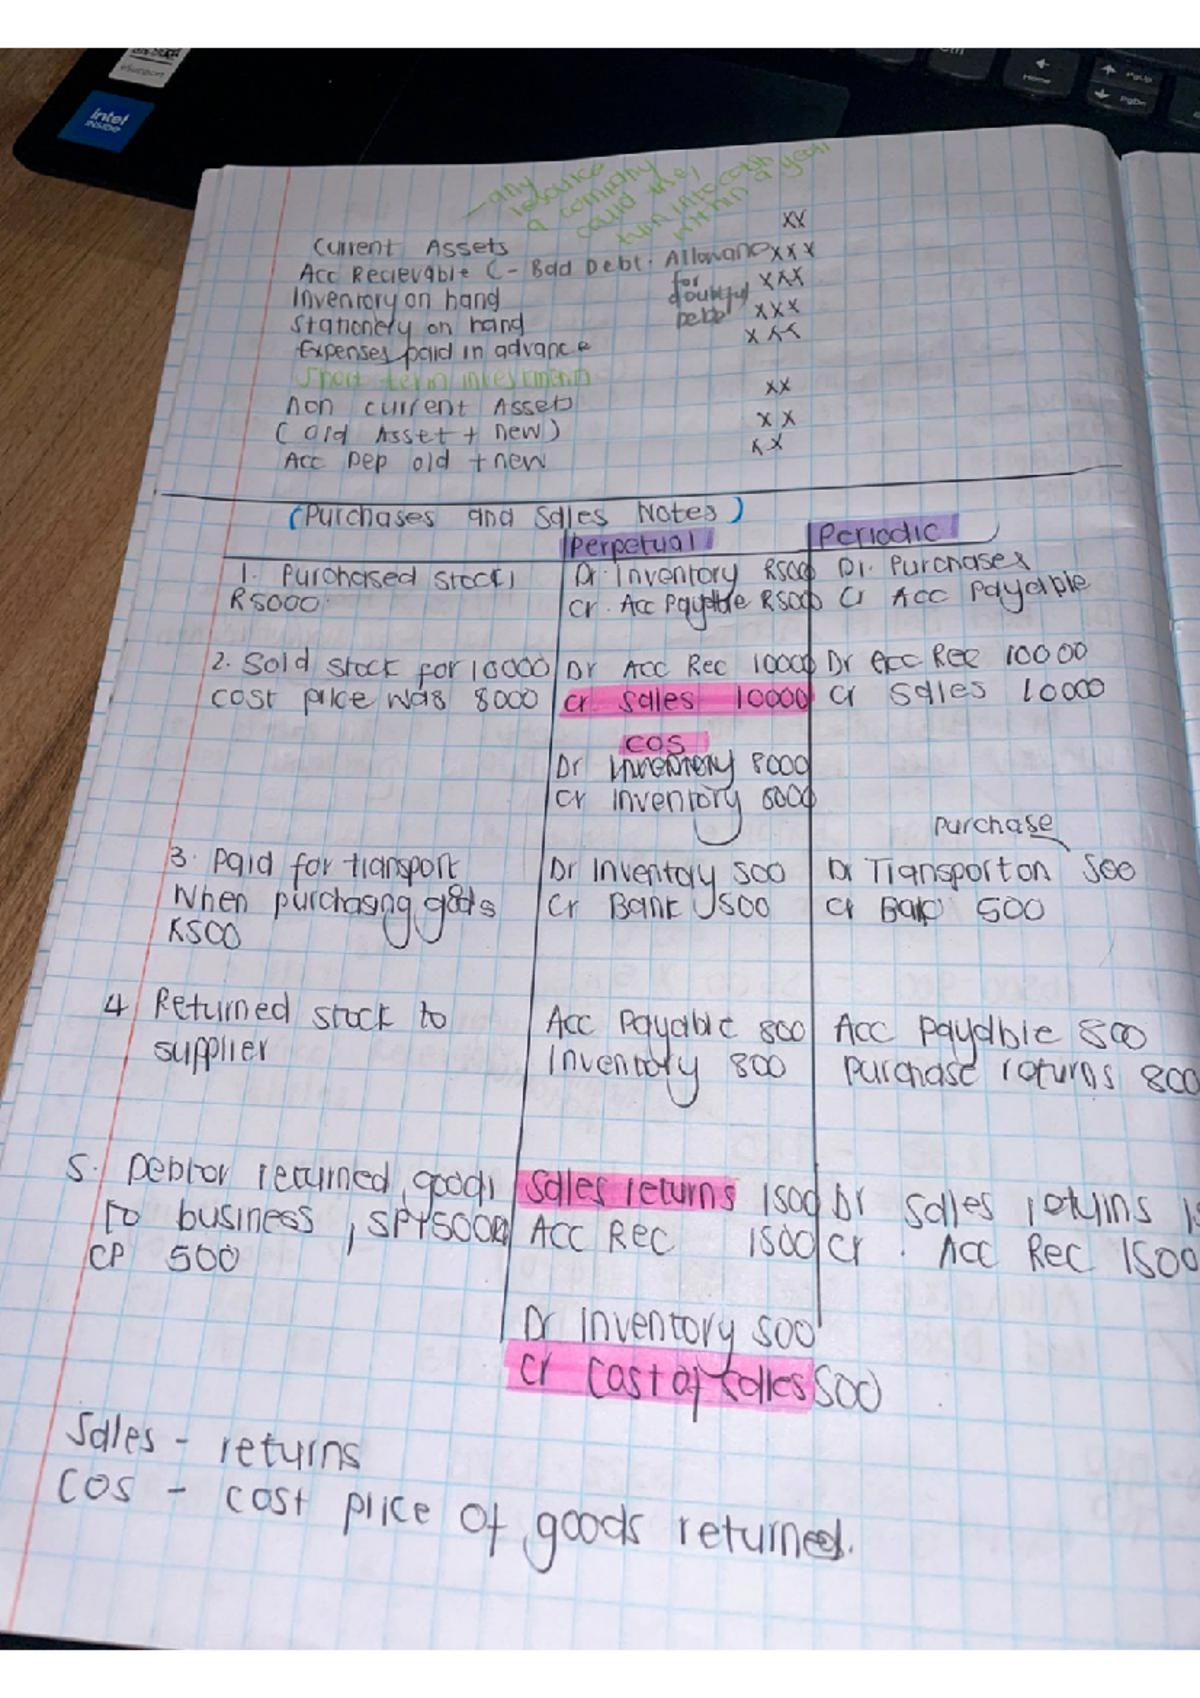 intel
INSIDE
Home
PgUp
PgDn
- any
resource
a company
could use,
turn into cash
within a year
Current Assets xx
Acc Recievable (- Bad Debt. Allowance xxx
for
doubtful
Debt
Inventory on hand xxx
Stationery on hand xxx
Expenses paid in advance xxx
Short term investments
Non current Assets xx
(Old Asset + new) xx
Acc Dep old + new xx
(Purchases and Sales Notes)
Perpetual Periodic
1. Purchased stock, Dr. Inventory R5000 Dr. Purchases
R5000. Cr. Acc Payable R5000 Cr Acc Payable
2. Sold stock for 10000 Dr Acc Rec 10000 Dr Acc Rec 10000
cost price was 8000 Cr Sales 10000 Cr Sales 10000
COS
Dr Inventory 8000
Cr Inventory 8000
Purchase
3. Paid for transport Dr Inventory 500 Dr Transport on 500
When purchasing goods Cr Bank 500 Cr Bank 500
R500
4 Returned stock to Acc Payable 800 Acc Payable 800
supplier Inventory 800 Purchase returns 800
5. Debtor returned goods Sales returns 1500 Dr Sales returns
to business, SP1500 Acc Rec 1500 Cr. Acc Rec 1500
CP 500
Dr Inventory 500
Cr Cost of Sales 500
Sales - returns
COS - cost price of goods returned.